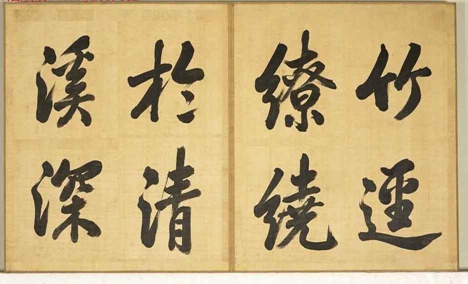 竹逕
繚繞
於清
溪深